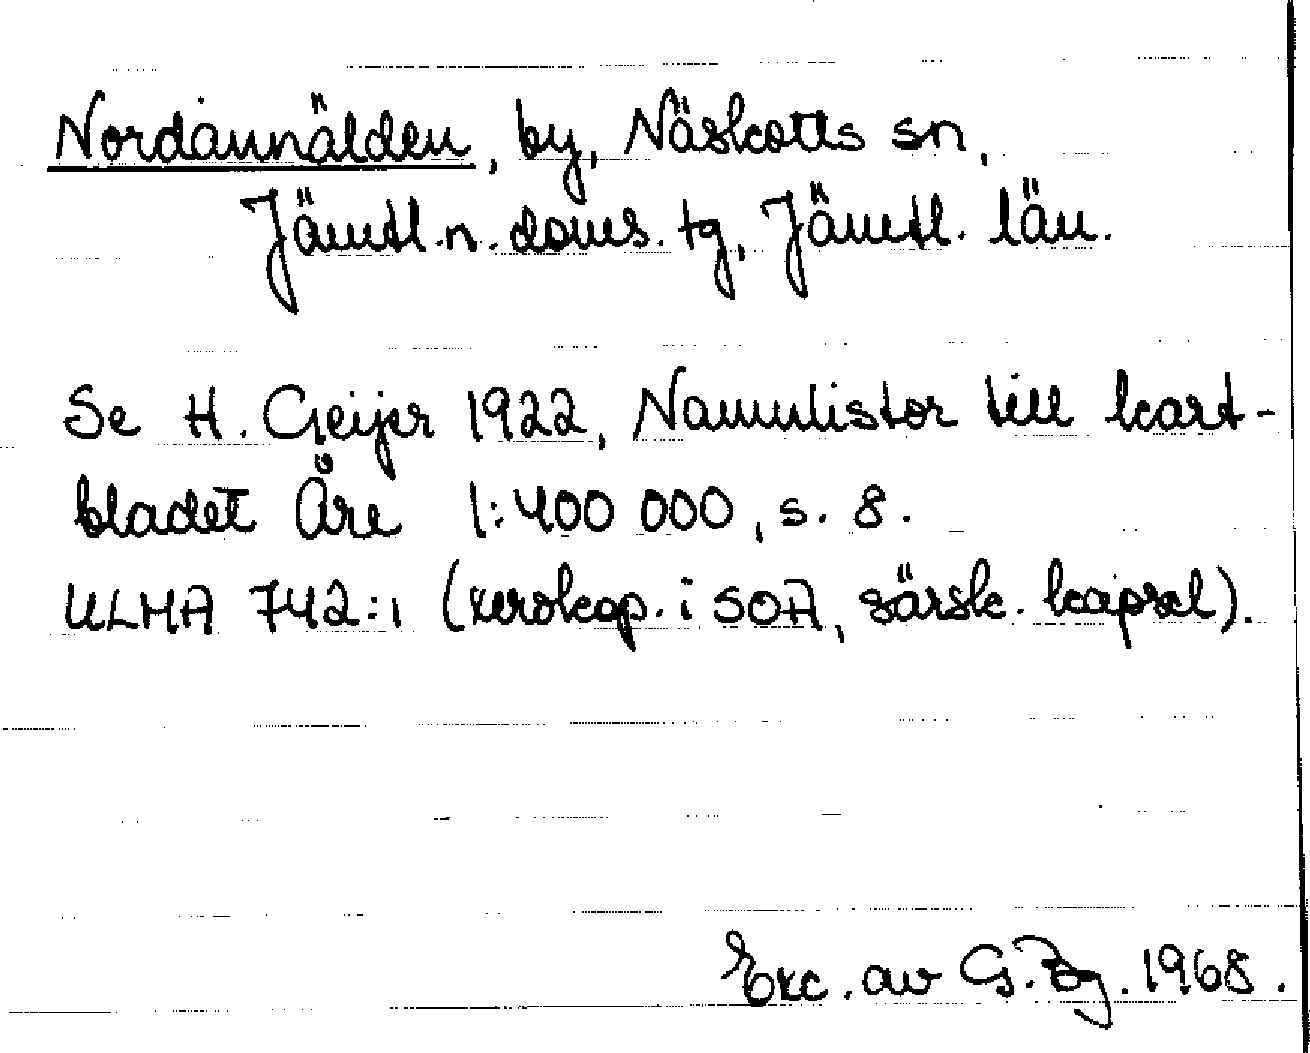 Nordannälden, by, Näskotts sn,
Jämtl.n. doms. tg, Jämtl. län.
Se H. Geijer 1922, Namnlistor till kart-
bladet Åre 1:400 000, s. 8.
ULMA 742:1 (xerokop. i SOA, särsk. kapsel).
Exc. av G. Bg. 1968.